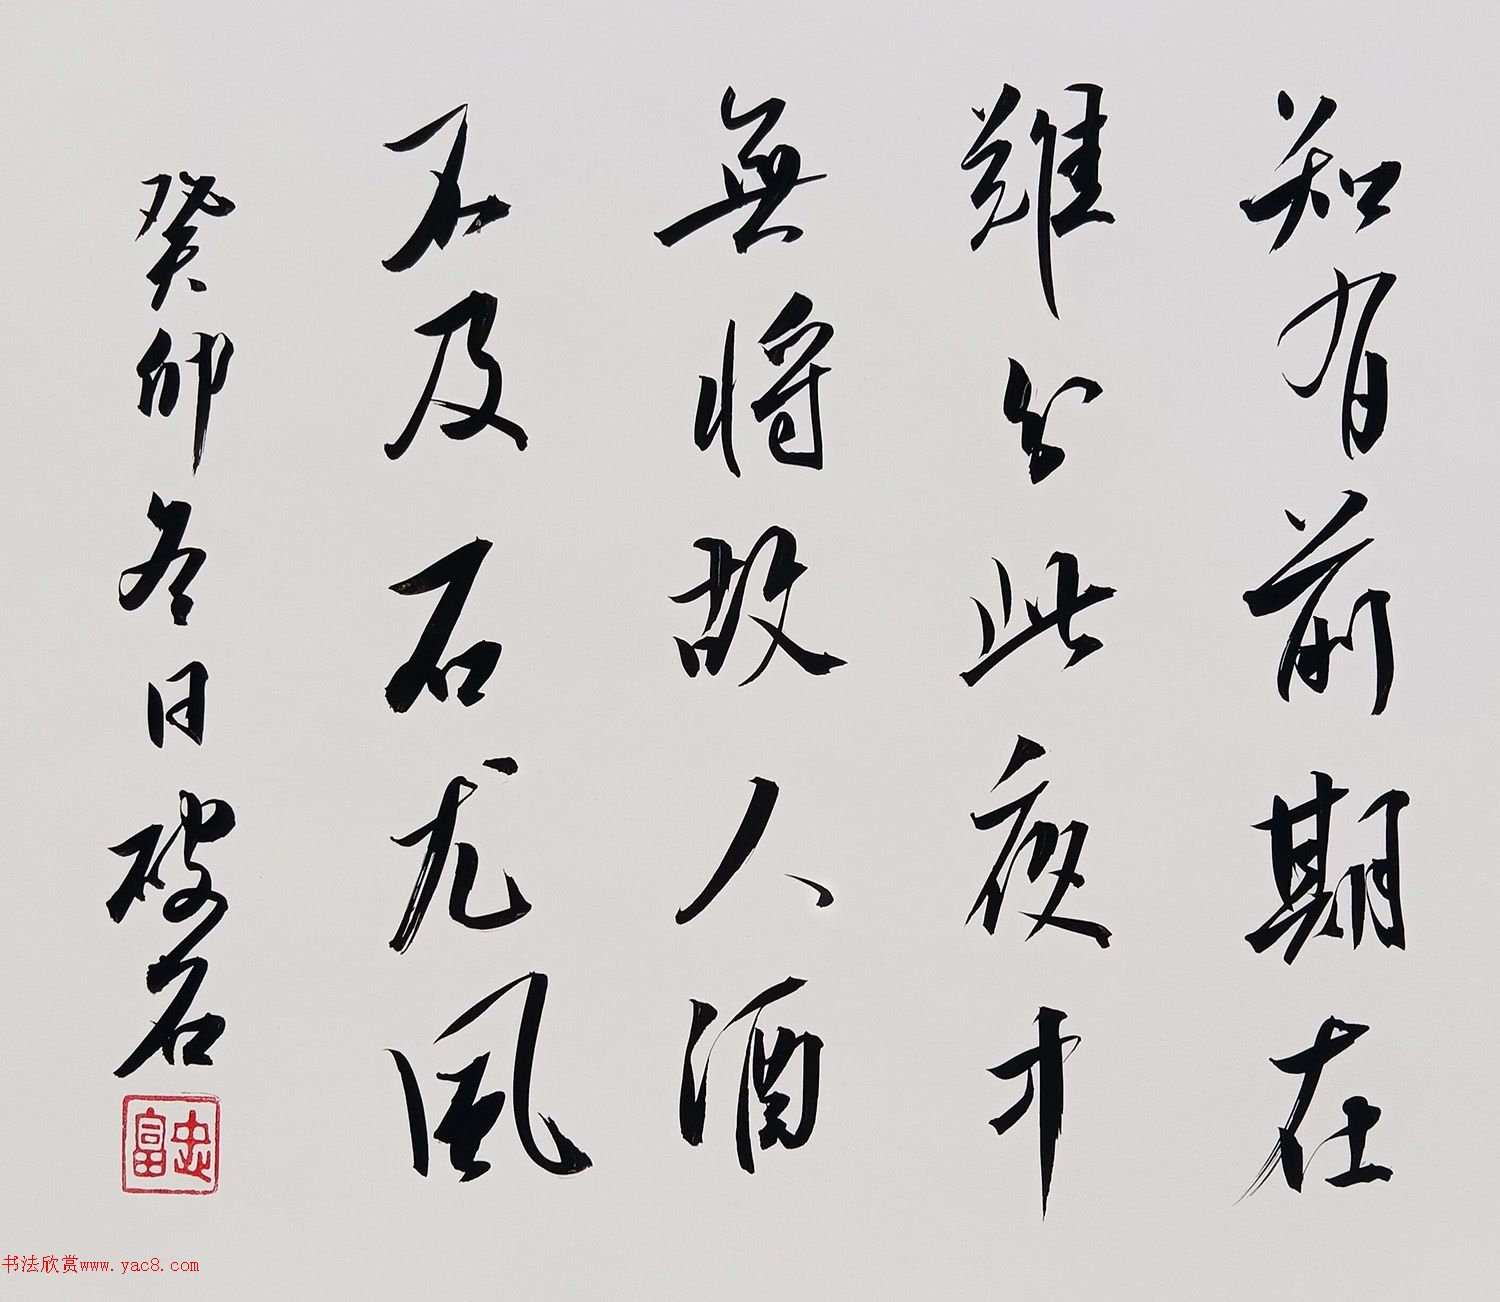 知有前期在
難分此夜中
無將故人酒
不及石尤風
癸卯冬日破石
忠富
书法欣赏www.yac8.com